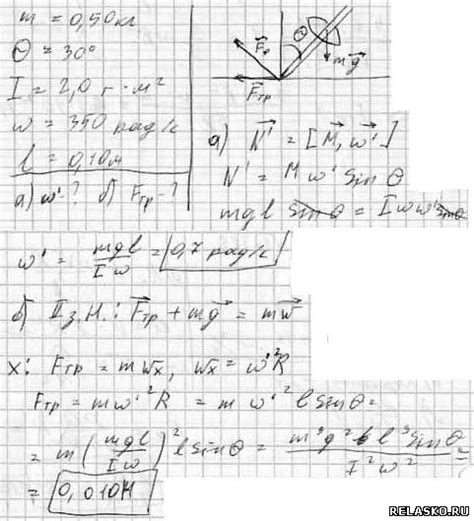 m = 0,50 кг
Θ = 30°
I = 2,0 г·м²
ω = 350 рад/с
l = 0,10 м
а) ω'-? б) Fтр-?
Θ
mg
Fр
Fтр
а) N' = [M, ω']
N' = M ω' sin Θ
mgl sin Θ = I ω ω' sin Θ
ω' = mgl / Iω = 0,7 рад/с
б) II з.Н.: Fтр + mg = mw
x: Fтр = m wx, wx = ω'²R
Fтр = m ω'²R = m ω'² l sin Θ =
= m (mgl / Iω)² l sin Θ = m³g² l³ sin Θ / I²ω² =
= 0,010 Н
RELASKO.RU